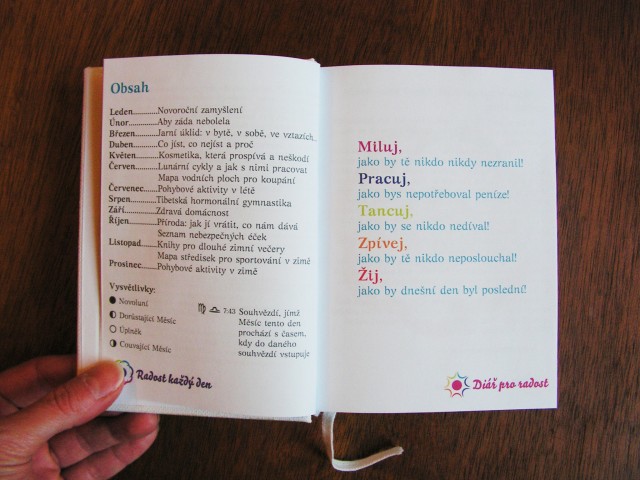 Obsah
Leden............Novoroční zamyšlení
Únor.............Aby záda nebolela
Březen..........Jarní úklid: v bytě, v sobě, ve vztazích..
Duben...........Co jíst, co nejíst a proč
Květen..........Kosmetika, která prospívá a neškodí
Červen..........Lunární cykly a jak s nimi pracovat
Mapa vodních ploch pro koupání
Červenec......Pohybové aktivity v létě
Srpen............Tibetská hormonální gymnastika
Září...............Zdravá domácnost
Říjen.............Příroda: jak jí vrátit, co nám dává
Seznam nebezpečných éček
Listopad.......Knihy pro dlouhé zimní večery
Mapa středisek pro sportování v zimě
Prosinec.......Pohybové aktivity v zimě
Vysvětlivky:
Novoluní
Dorůstající Měsíc
Úplněk
Couvající Měsíc
♍ ♎ 7:43 Souhvězdí, jímž
Měsíc tento den
prochází s časem,
kdy do daného
souhvězdí vstupuje
Radost každý den
Miluj,
jako by tě nikdo nikdy nezranil!
Pracuj,
jako bys nepotřeboval peníze!
Tancuj,
jako by se nikdo nedíval!
Zpívej,
jako by tě nikdo neposlouchal!
Žij,
jako by dnešní den byl poslední!
Diář pro radost